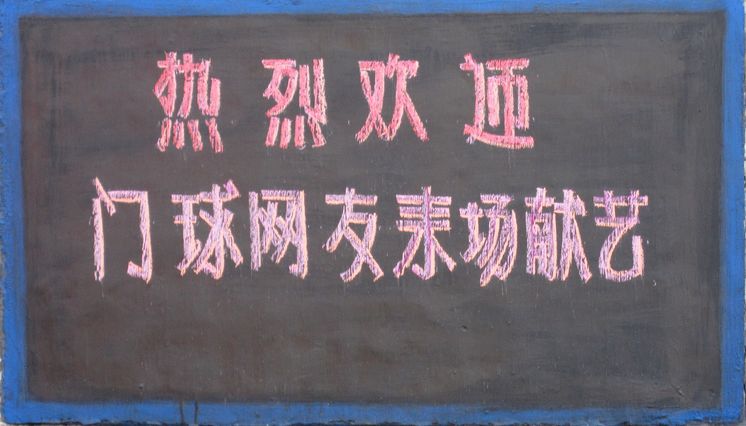 热烈欢迎
门球网友来场献艺